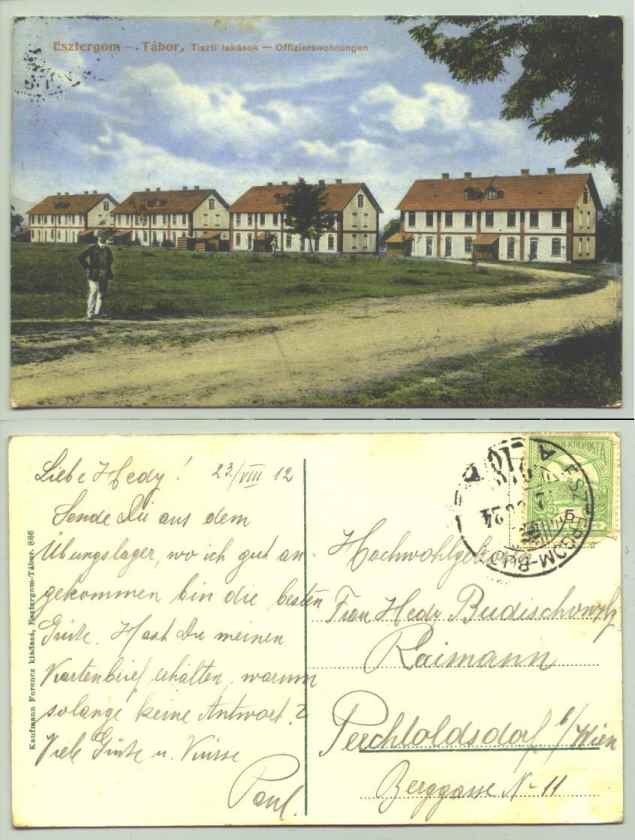 Esztergom — Tábor, Tiszti lakások — Offizierswohnungen
Liebe Hedy! 23/VIII 12
Sende Dir aus dem
Übungslager, wo ich gut an-
gekommen bin die besten
Grüße. Hast Du meinen
Kartenbrief erhalten, warum
solange keine Antwort?
Viele Grüße u. Küsse
Paul.
Kaufmann Ferencz kiadása, Esztergom-Tábor. 686
Frau Hedy
Raimann
Perchtoldsdorf b/Wien
Berggasse No 11
ESZTERGOM